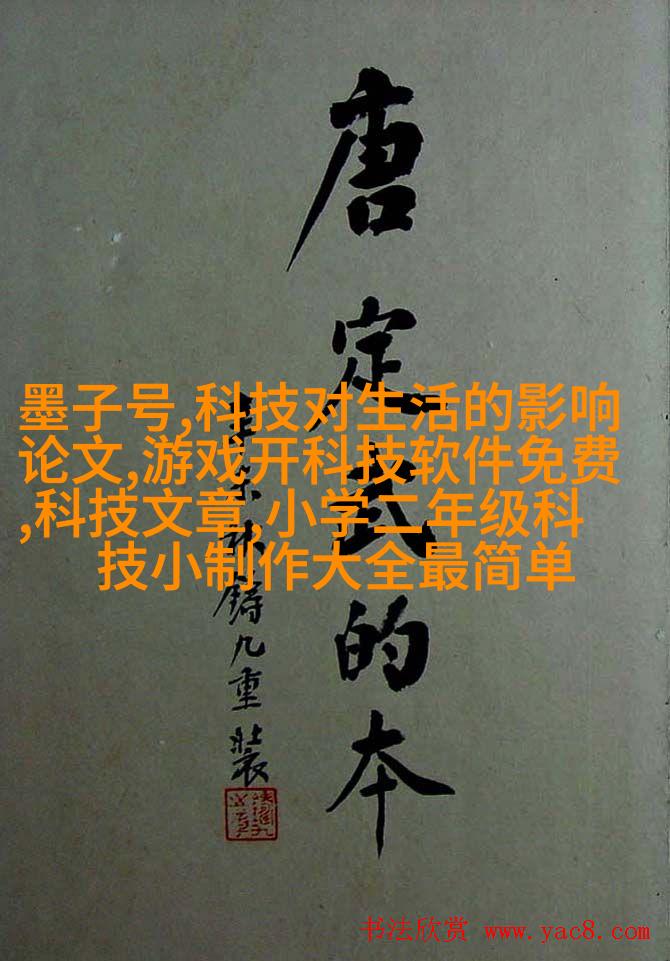 墨子号,科技对生活的影响
论文,游戏开科技软件免费
,科技文章,小学二年级科
技小制作大全最简单
唐定武的本
秋鑄九重裝
书法欣赏 www.yac8.com